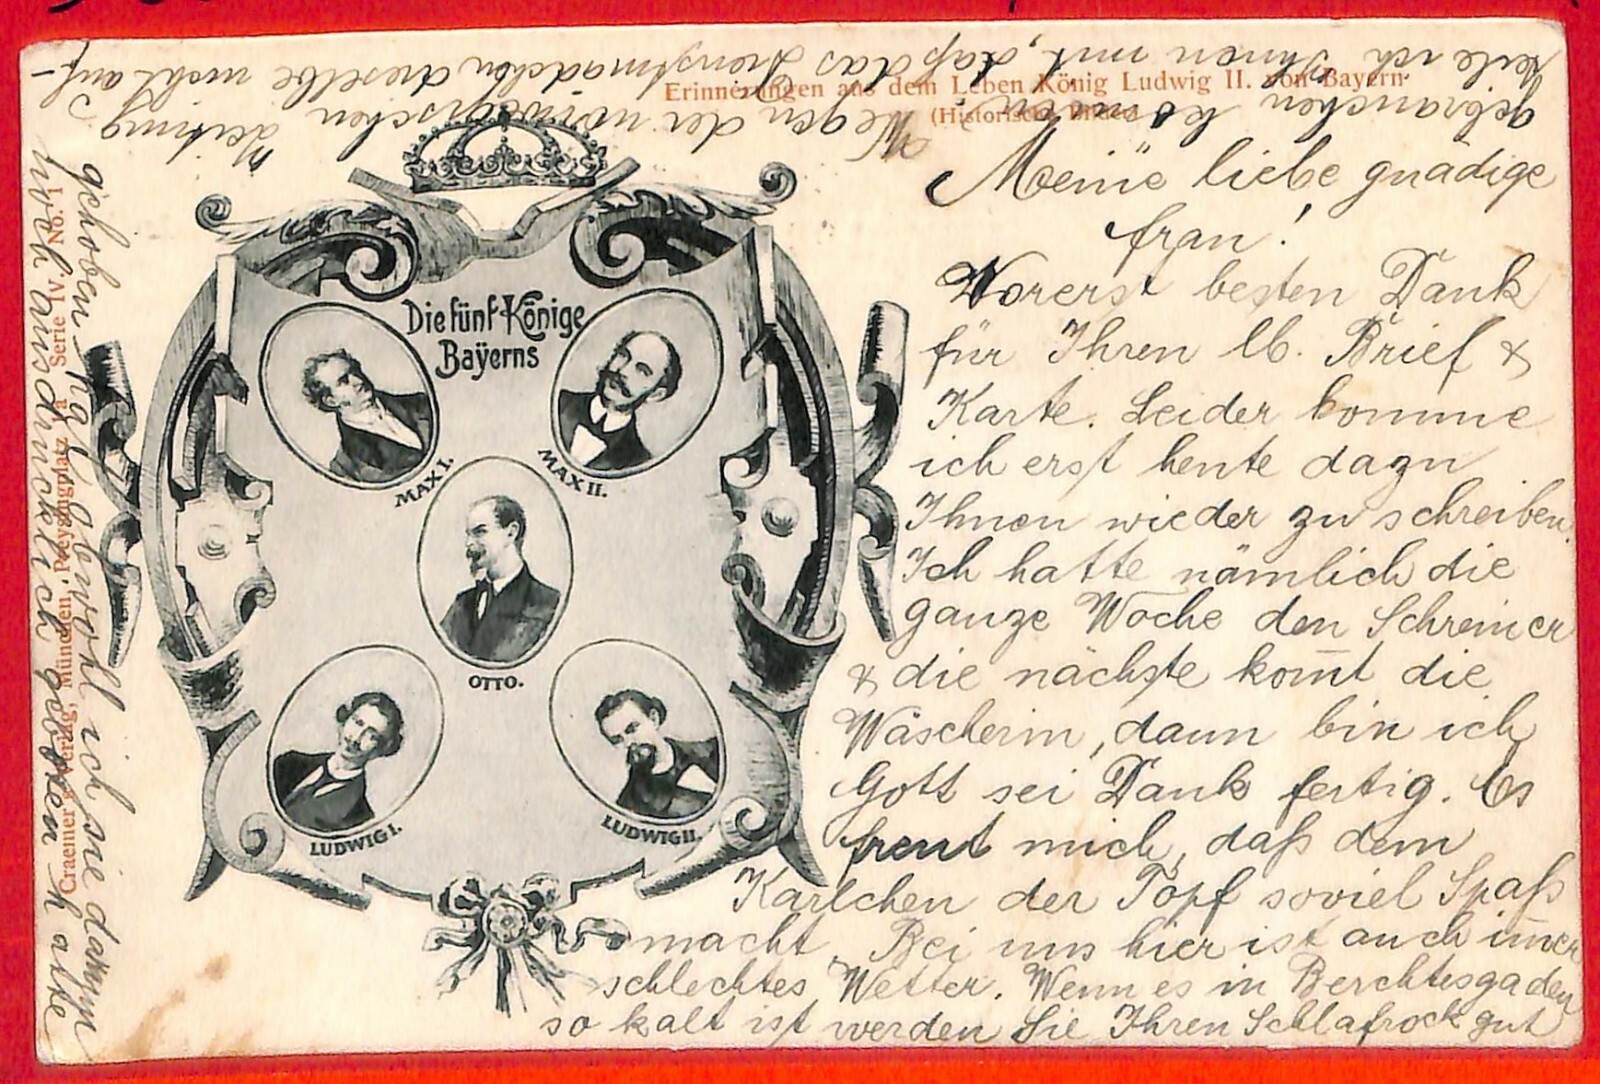 Erinnerungen aus dem Leben König Ludwig II. von Bayern
(Historische Bilder)
Die fünf Könige
Bayerns
MAX I.
MAX II.
OTTO.
LUDWIG I.
LUDWIG II.
Craemer's Verlag, München, Preysingplatz 1a Serie IV No. 1
Meine liebe gnädige
frau!
Vorerst besten Dank
für Ihren lb. Brief &
Karte. Leider komme
ich erst heute dazu
Ihnen wieder zu schreiben.
Ich hatte nämlich die
ganze Woche den Schreiner
& die nächste kom̅t die
Wäscherin, dann bin ich
Gott sei Dank fertig. Es
freut mich, daß dem
Karlchen der Topf soviel Spaß
macht. Bei uns hier ist auch im̅er
schlechtes Wetter. Wenn es in Berchtesgaden
so kalt ist werden Sie Ihren Schlafrock gut
gebrauchen können. Wegen der Zeitung
teile ich Ihnen mit, daß das Dienstmädchen dieselbe nicht auf-
gehoben hat, obwohl ich sie darum
noch ausdrücklich gebeten hatte